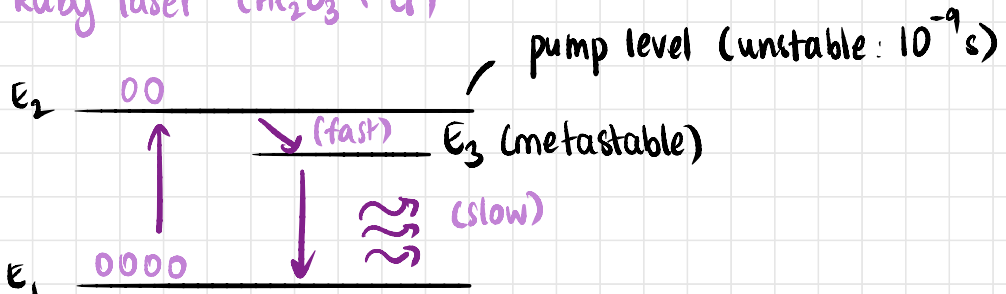 Ruby laser (Al₂O₃ + Cr)
pump level (unstable: 10⁻⁹ s)
E₂ 00
(fast) E₃ (metastable)
(slow)
0000
E₁